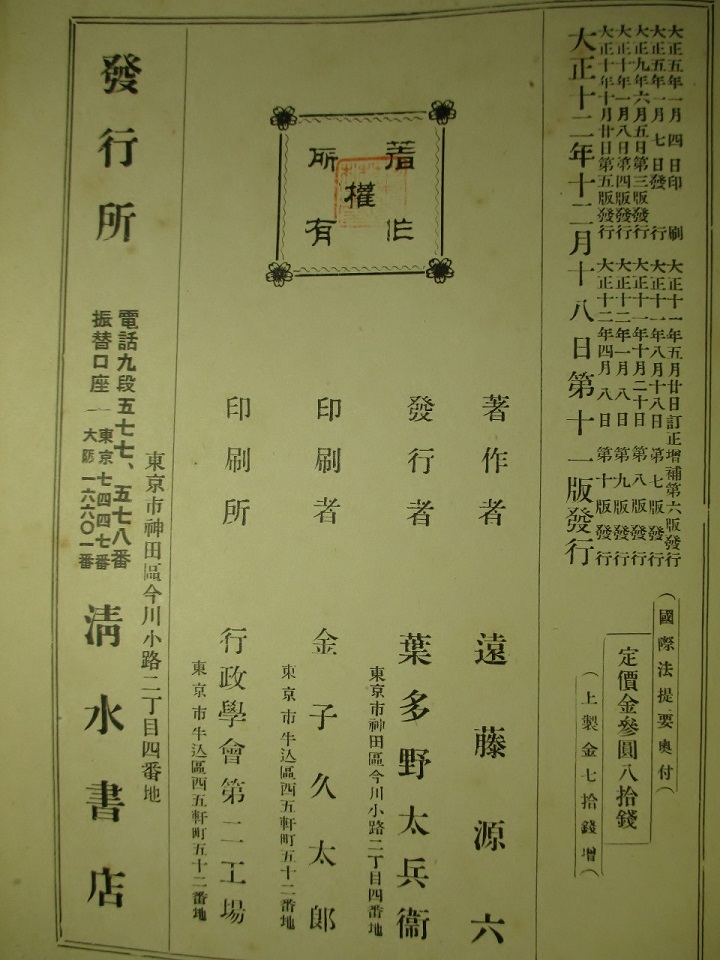 大正五年一月四日印刷
大正五年一月七日發行
大正九年六月五日第三版發行
大正十年一月八日第四版發行
大正十年十月廿日第五版發行
大正十一年五月廿日訂正增補第六版發行
大正十一年八月十八日第七版發行
大正十一年十月二十日第八版發行
大正十二年一月八日第九版發行
大正十二年四月八日第十版發行
大正十二年十二月十八日第十一版發行
(國際法提要奧付)
定價金參圓八拾錢
(上製金七拾錢增)
著作
權
所有
著作者 遠藤源六
東京市神田區今川小路二丁目四番地
發行者 葉多野太兵衞
東京市牛込區西五軒町五十二番地
印刷者 金子久太郎
東京市牛込區西五軒町五十二番地
印刷所 行政學會第二工場
東京市神田區今川小路二丁目四番地
發行所 淸水書店
電話九段五七七、五七八番
振替口座 東京七四四七番
大阪一六六〇一番